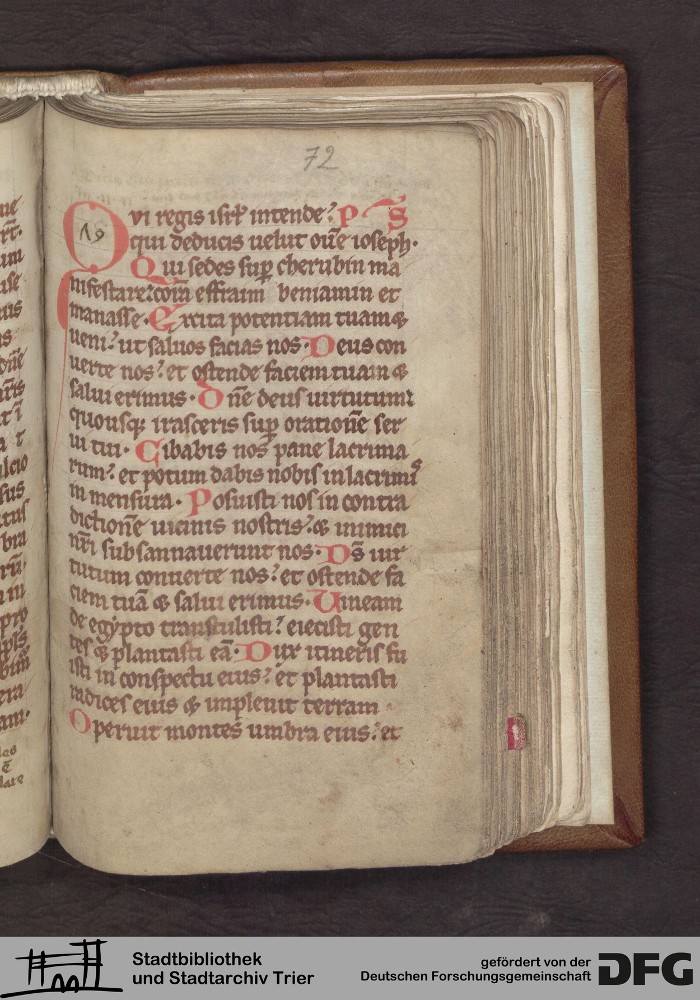 72
Qui regis isrł intende? PS
19
qui deducis uelut oue ioseph.
Qui sedes sup cherubin ma
nifestare? corā effraim beniamin et
manasse. Excita potentiam tuam &
ueni? ut saluos facias nos. Deus con
uerte nos? et ostende faciem tuam &
salui erimus. Dn̄e deus uirtutum?
quousq; irasceris sup orationē ser
ui tui. Cibabis nos pane lacrima
rum? et potum dabis nobis in lacrimis
in mensura. Posuisti nos in contra
dictionē uicinis nostris? & inimici
nr̄i subsannauerunt nos. Ds̄ uir
tutum conuerte nos? et ostende fa
ciem tuā & salui erimus. Uineam
de egypto transtulisti? eiecisti gen
tes & plantasti eā. Dux itineris fu
isti in conspectu eius? et plantasti
radices eius & impleuit terram.
Operuit montes umbra eius? et
Stadtbibliothek
und Stadtarchiv Trier
gefördert von der
Deutschen Forschungsgemeinschaft
DFG